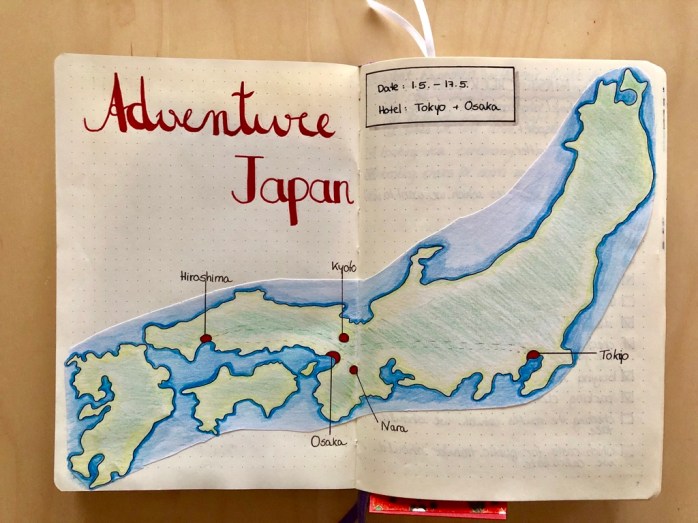 Adventure
Japan
Date: 1.5. – 17.5.
Hotel: Tokyo + Osaka
Hiroshima
Kyoto
Tokyo
Osaka
Nara